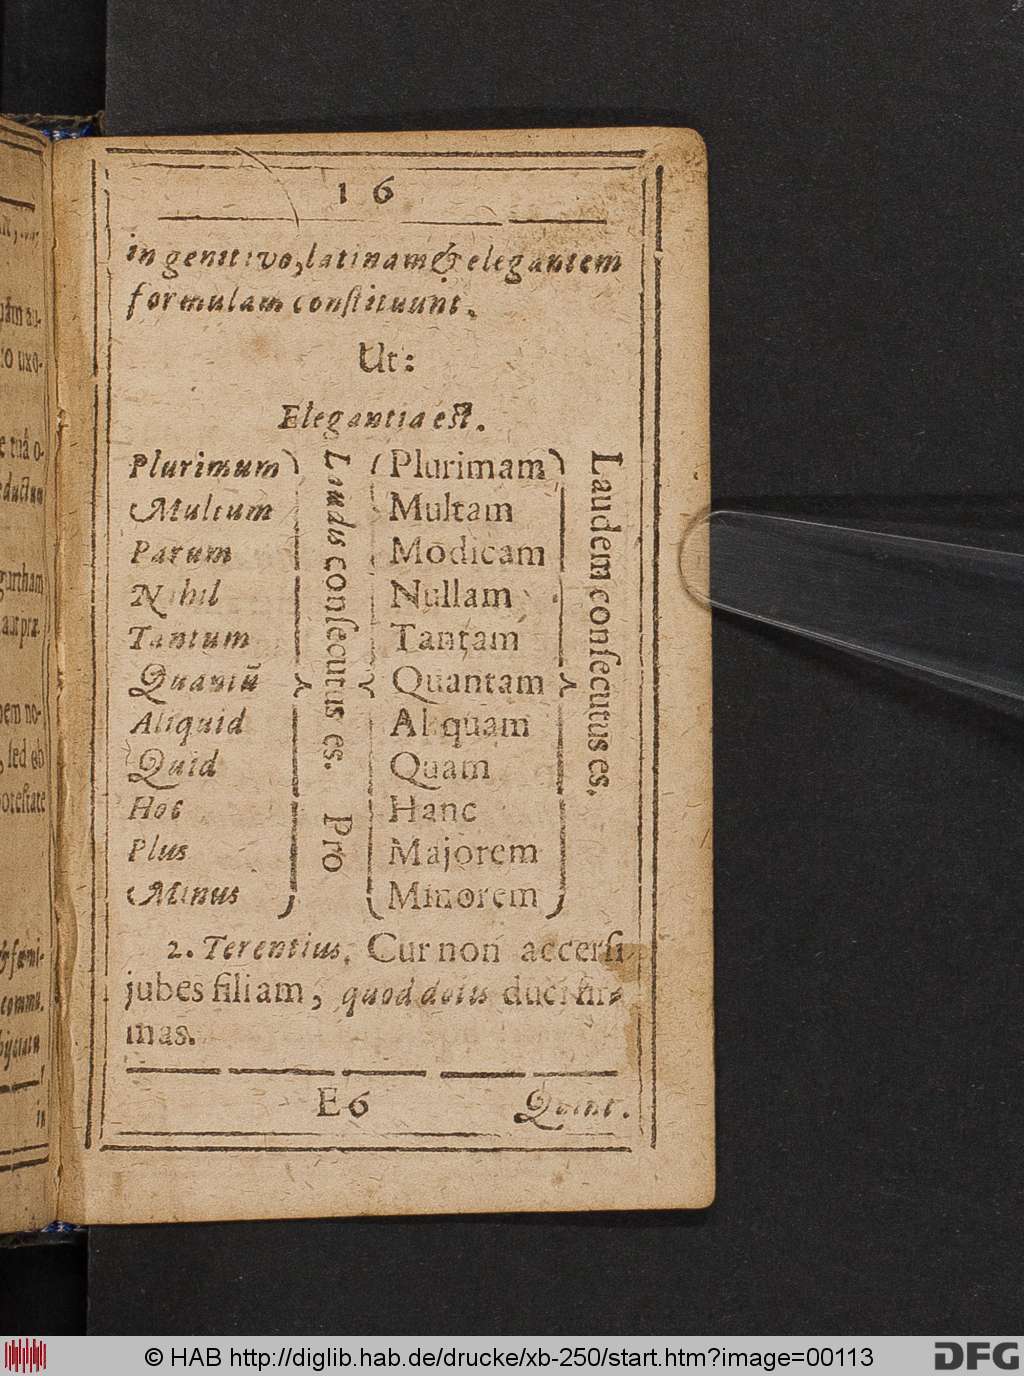 1 6
in genitivo, latinam & elegantem
formulam constituunt.
Ut:
Elegantia est.
Plurimum
Multum
Parum
Nihil
Tantum
Quantū
Aliquid
Quid
Hoc
Plus
Minus
Laudis conſecutus es. Pro
Plurimam
Multam
Modicam
Nullam
Tantam
Quantam
Aliquam
Quam
Hanc
Majorem
Minorem
Laudem conſecutus es.
2. Terentius. Cur non accerſi
jubes filiam, quod dotis duci fir-
mas.
E6 Quint.
© HAB http://diglib.hab.de/drucke/xb-250/start.htm?image=00113
DFG